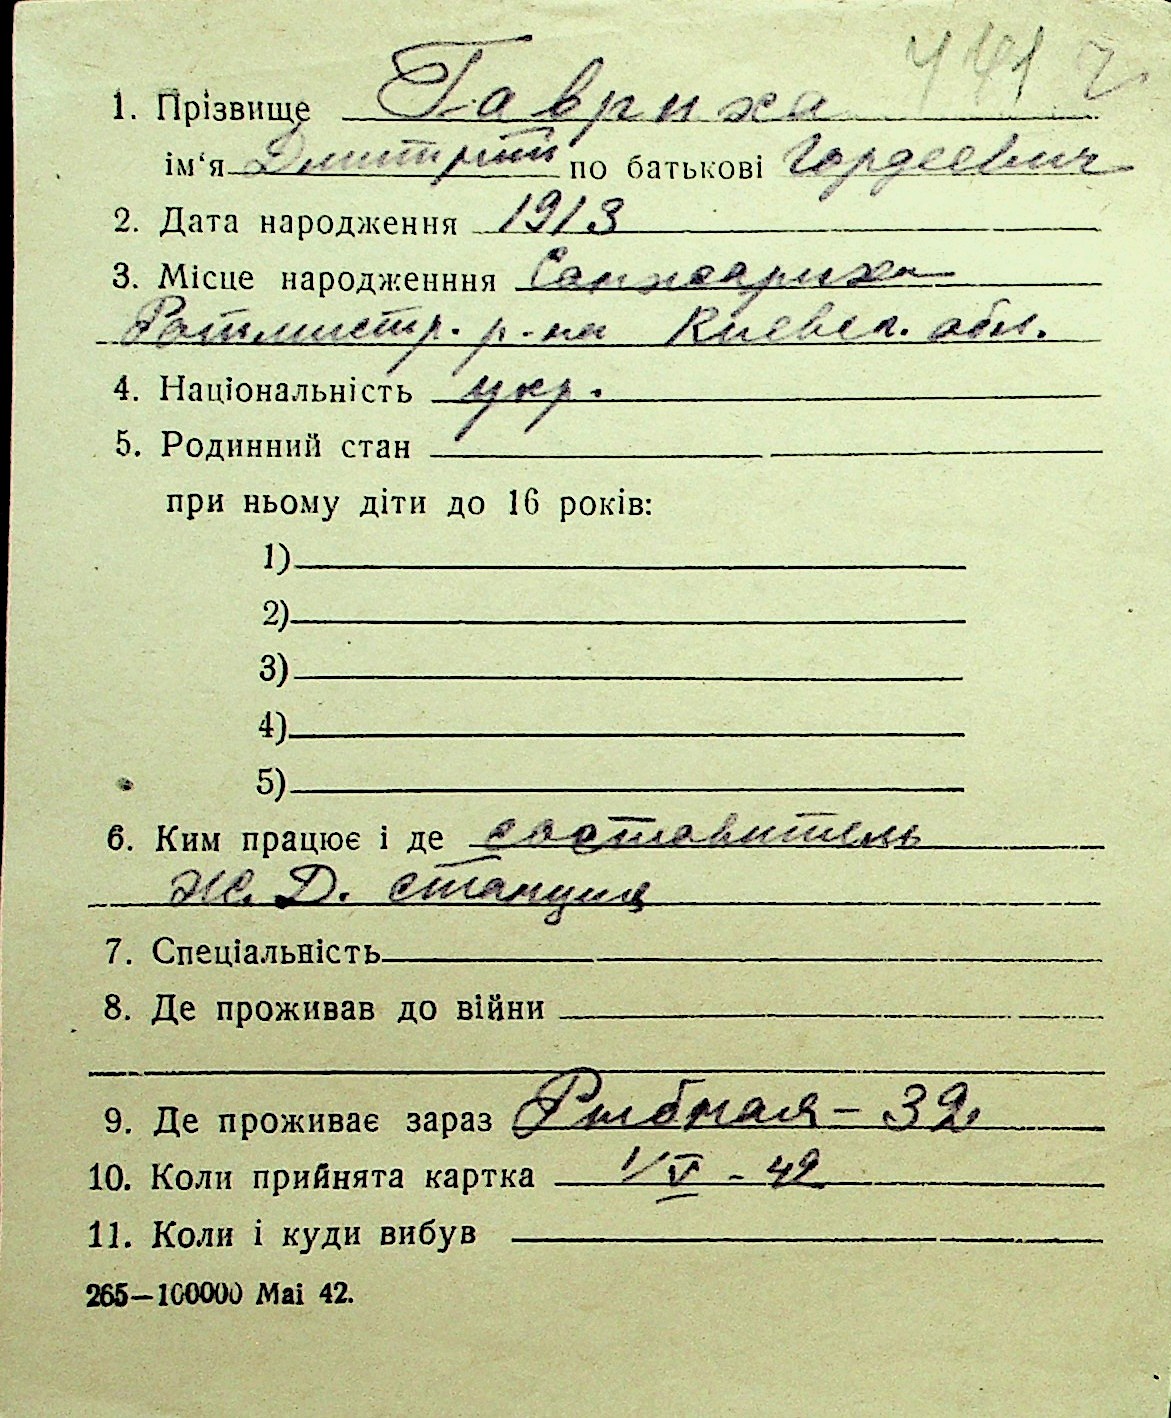 441 г
1. Прізвище Гавриха
ім‘я Дмитрий по батькові Гордеевич
2. Дата народження 1913
3. Місце народженння Санжариха
Ротмистр. р-на Киевск. обл.
4. Національність укр.
5. Родинний стан
при ньому діти до 16 років:
1)
2)
3)
4)
5)
6. Ким працює і де составитель
Ж. Д. станция
7. Спеціальність
8. Де проживав до війни
9. Де проживає зараз Рыбная - 32
10. Коли прийнята картка 1/V - 42
11. Коли і куди вибув
265—100000 Mai 42.